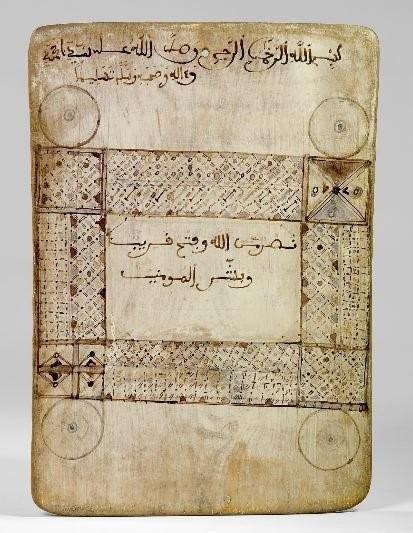 بسم الله الرحمن الرحيم وصلى الله على سيدنا محمد
وءاله وصحبه وسلم تسليما
نصر من الله وفتح قريب
وبشر المومنين